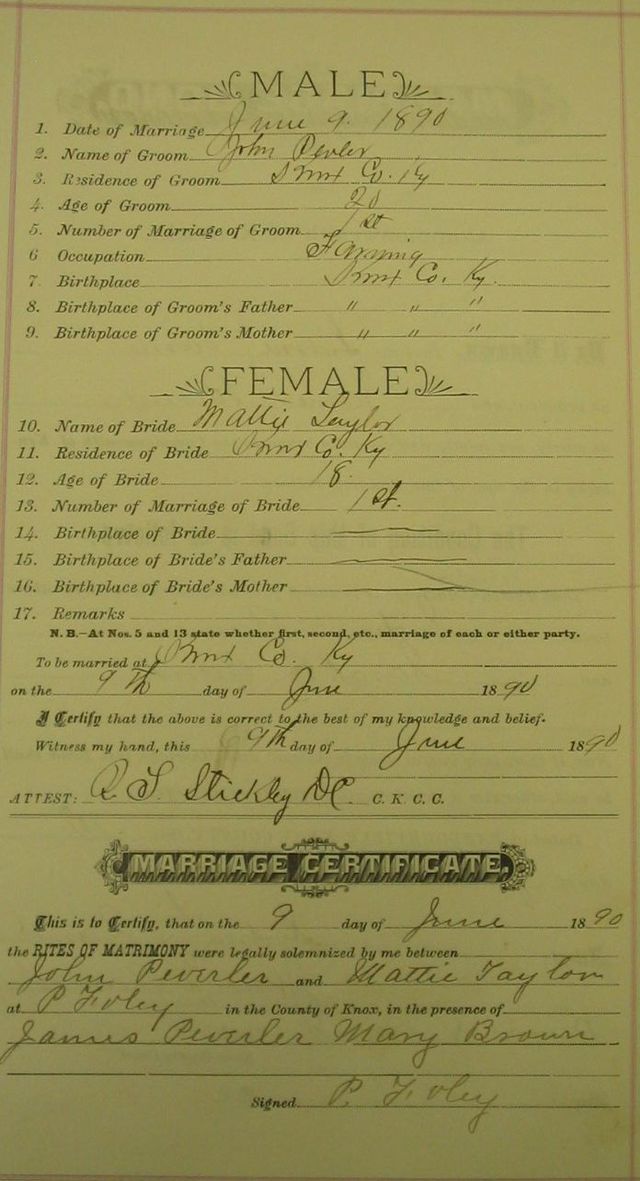 MALE
1. Date of Marriage June 9. 1890
2. Name of Groom John Pevler
3. Residence of Groom Knox Co. Ky
4. Age of Groom 20
5. Number of Marriage of Groom 1st
6 Occupation Farming
7 Birthplace Knox Co. Ky.
8. Birthplace of Groom's Father " " "
9. Birthplace of Groom's Mother " " "
FEMALE
10. Name of Bride Mattie Taylor
11. Residence of Bride Knox Co. Ky
12. Age of Bride 18.
13. Number of Marriage of Bride 1st.
14. Birthplace of Bride
15. Birthplace of Bride's Father
16. Birthplace of Bride's Mother
17. Remarks
N. B.—At Nos. 5 and 13 state whether first, second, etc., marriage of each or either party.
To be married at Knox Co. Ky
on the 9th day of June 1890
I Certify that the above is correct to the best of my knowledge and belief.
Witness my hand, this 9th day of June 1890
ATTEST: Stickley DC. C. K. C. C.
MARRIAGE CERTIFICATE.
This is to Certify, that on the 9 day of June 1890
the RITES OF MATRIMONY were legally solemnized by me between
John Peverler and Mattie Taylor
at P Foley in the County of Knox, in the presence of
James Peverler Mary Brown
Signed P. Foley